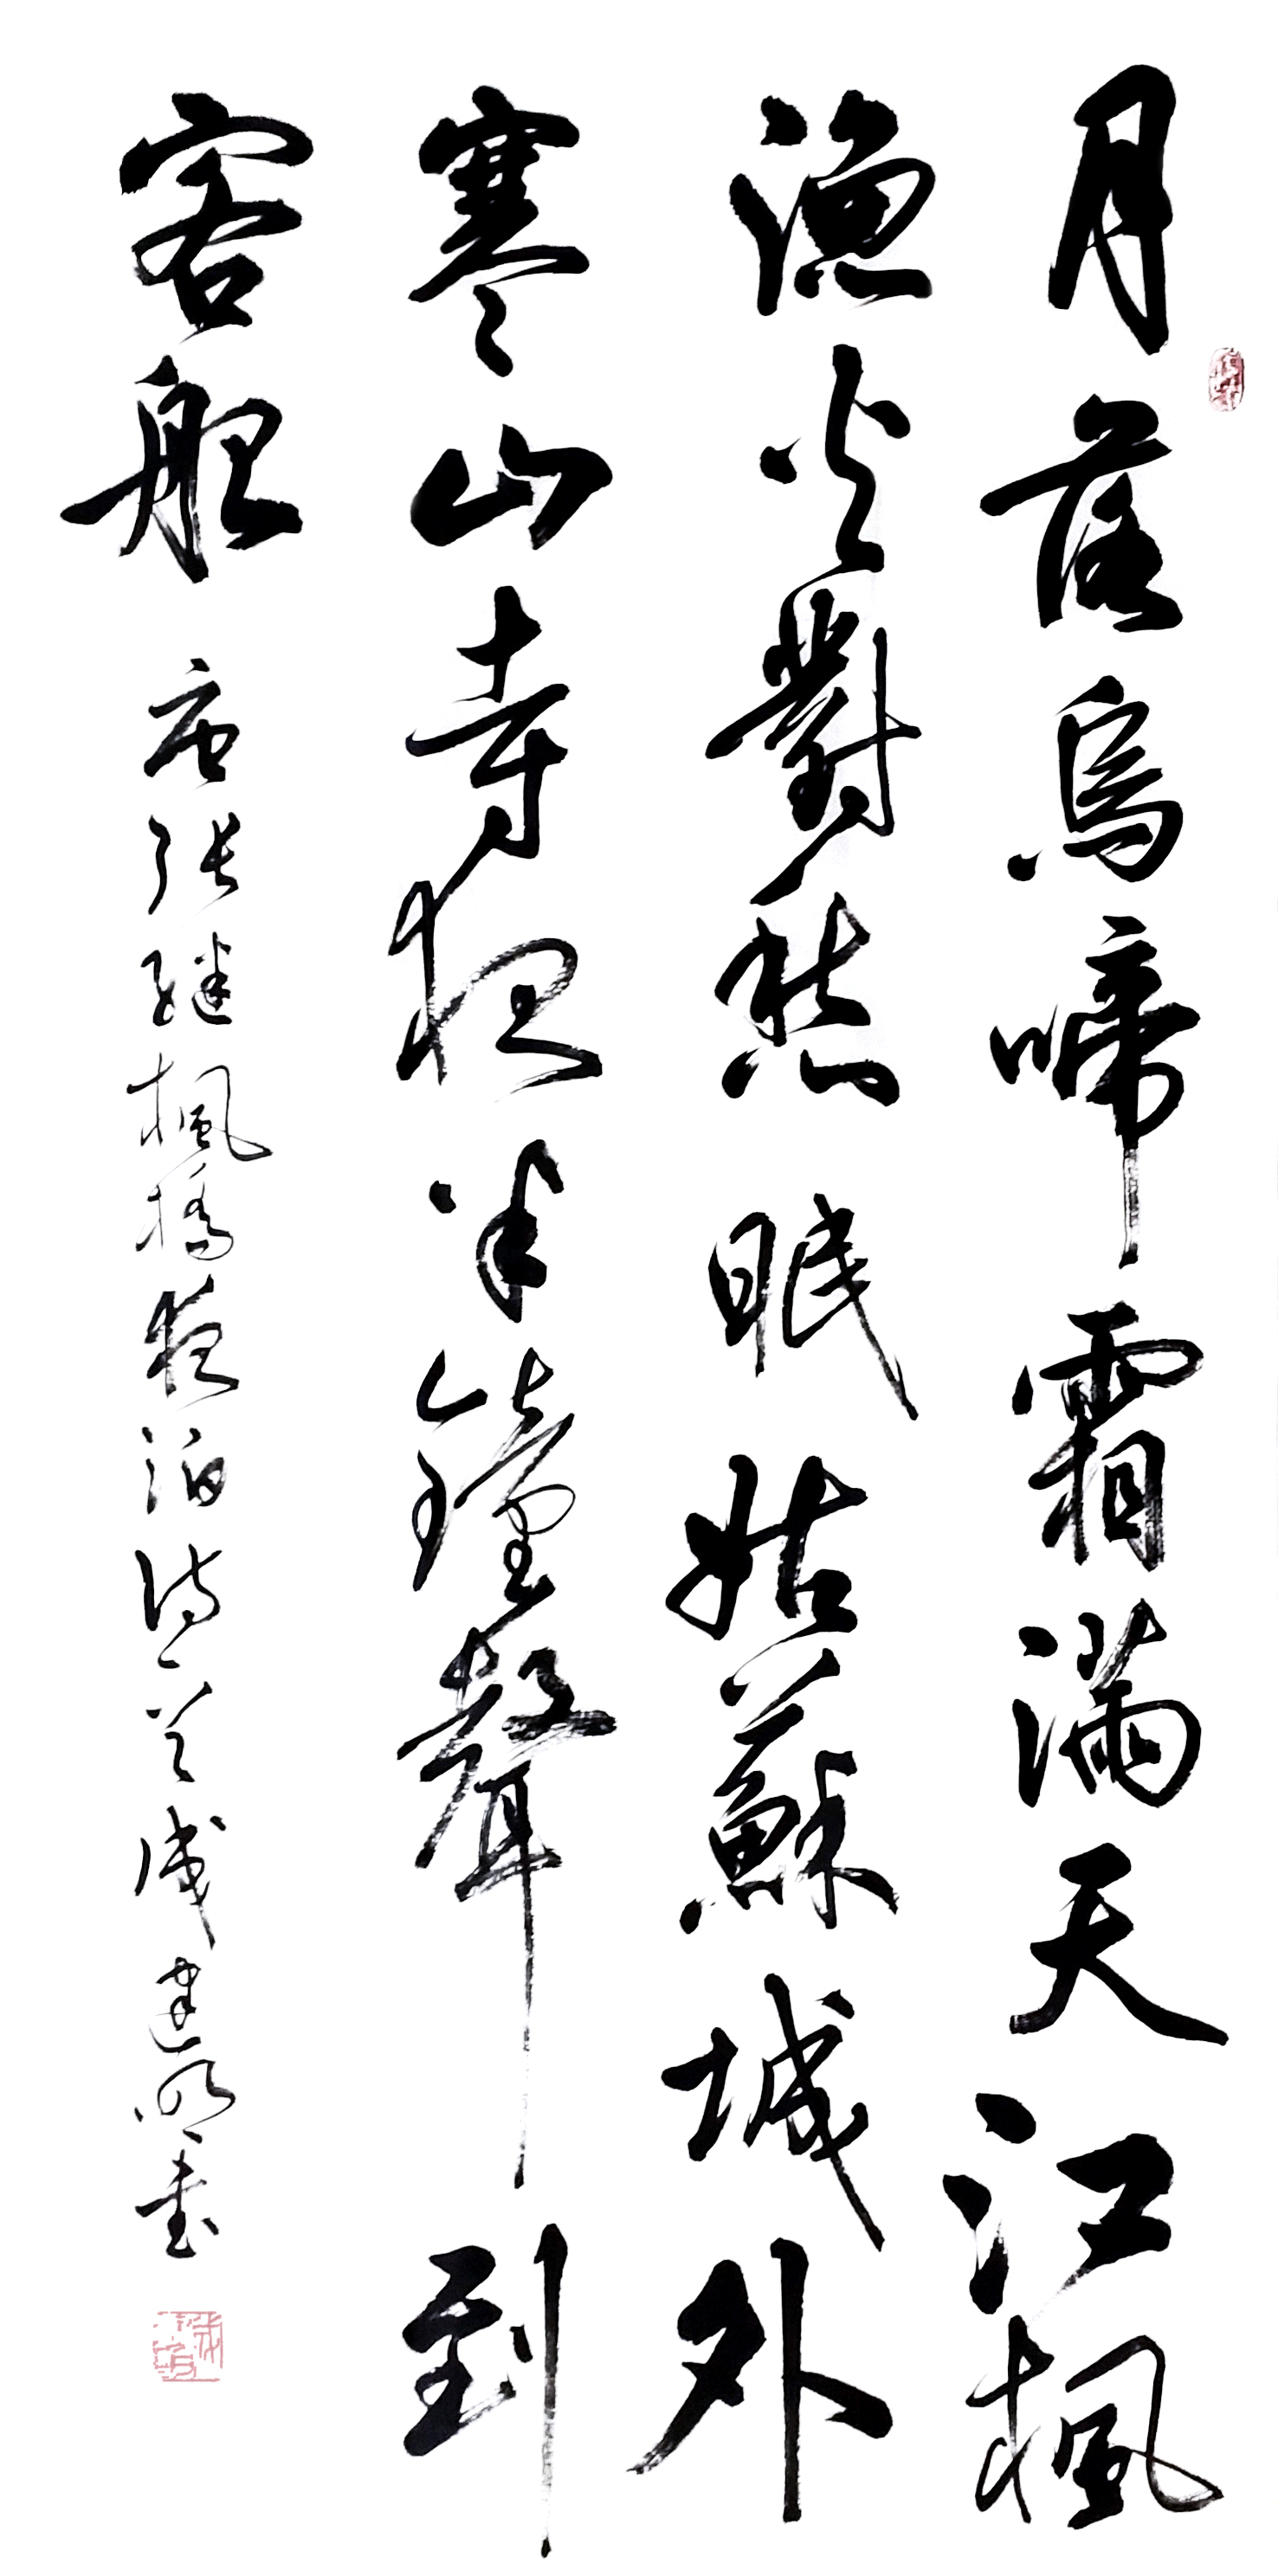 月落烏啼霜满天江楓
漁火對愁眠姑蘇城外
寒山寺夜半鐘聲到
客船
唐張继楓橋夜泊诗一首 建明書